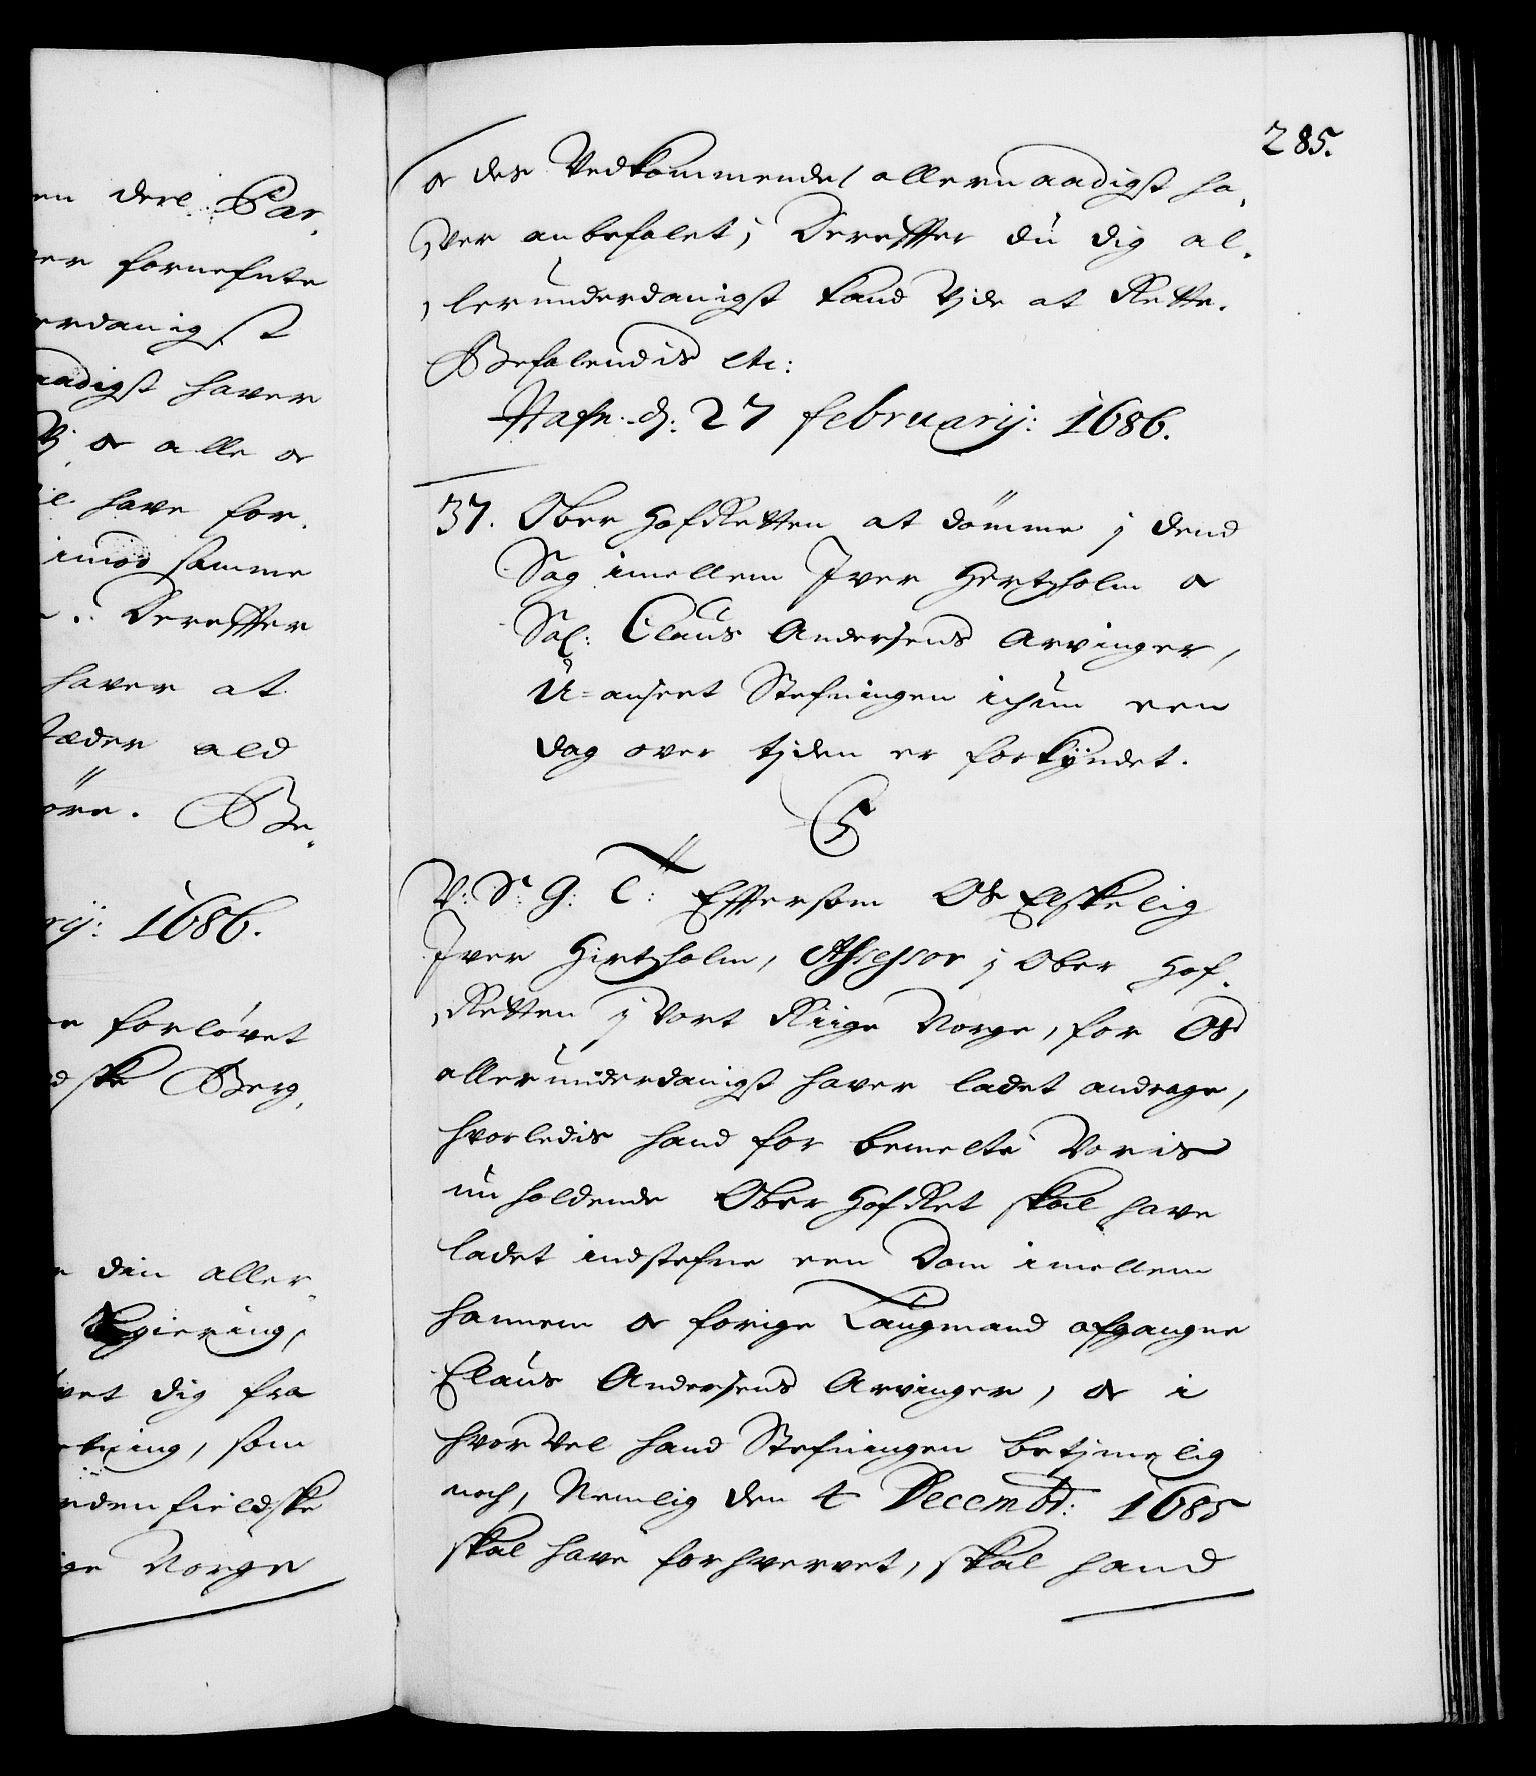 285.
en deel Par„
er fornefnte
erdanigst
aadigst hafver
Vj oc alle oc
il hafve for„
imod samme
Derefter
hafver at
stæder ald
öre. Be„
rij: 1686.
forlövet
dske Berg„
din aller„
Regiering,
vet dig fra
etning, som
nden fieldske
ige Norge
oc des Vedkommende) allernaadigst ha„
„fver anbefalet; Derefter du dig al„
„lerunderdanigst kand vide at Rette.
Befalendis etc:
Hafn. d: 27 februarij: 1686.
37. Ober HofRetten at dömme j dend
Sag imellem Iver Hertzholm oc
Sal: Claus Andersens Arvinger,
U=anseet Stefningen ichun een
dag over tjden er forkyndet.
C5
V: S: G: T: Eftersom Os Elskelig
Iver Hirtzholm, Assessor j Ober Hof„
„Retten j Vort Rige Norge, for Os
allerunderdanigst hafver ladet andrage,
hvorledis hand for bemelte Voris
nu holdende Ober HofRet skal hafve
ladet indstefne een Dom imellem
hannem oc forige Laugmand afgangne
Claus Andersens Arvinger, oc i
hvor vel hand Stefningen betjmelig
noch, Nemlig den 4 Decembr: 1685
skal hafve forhvervet, skal hand